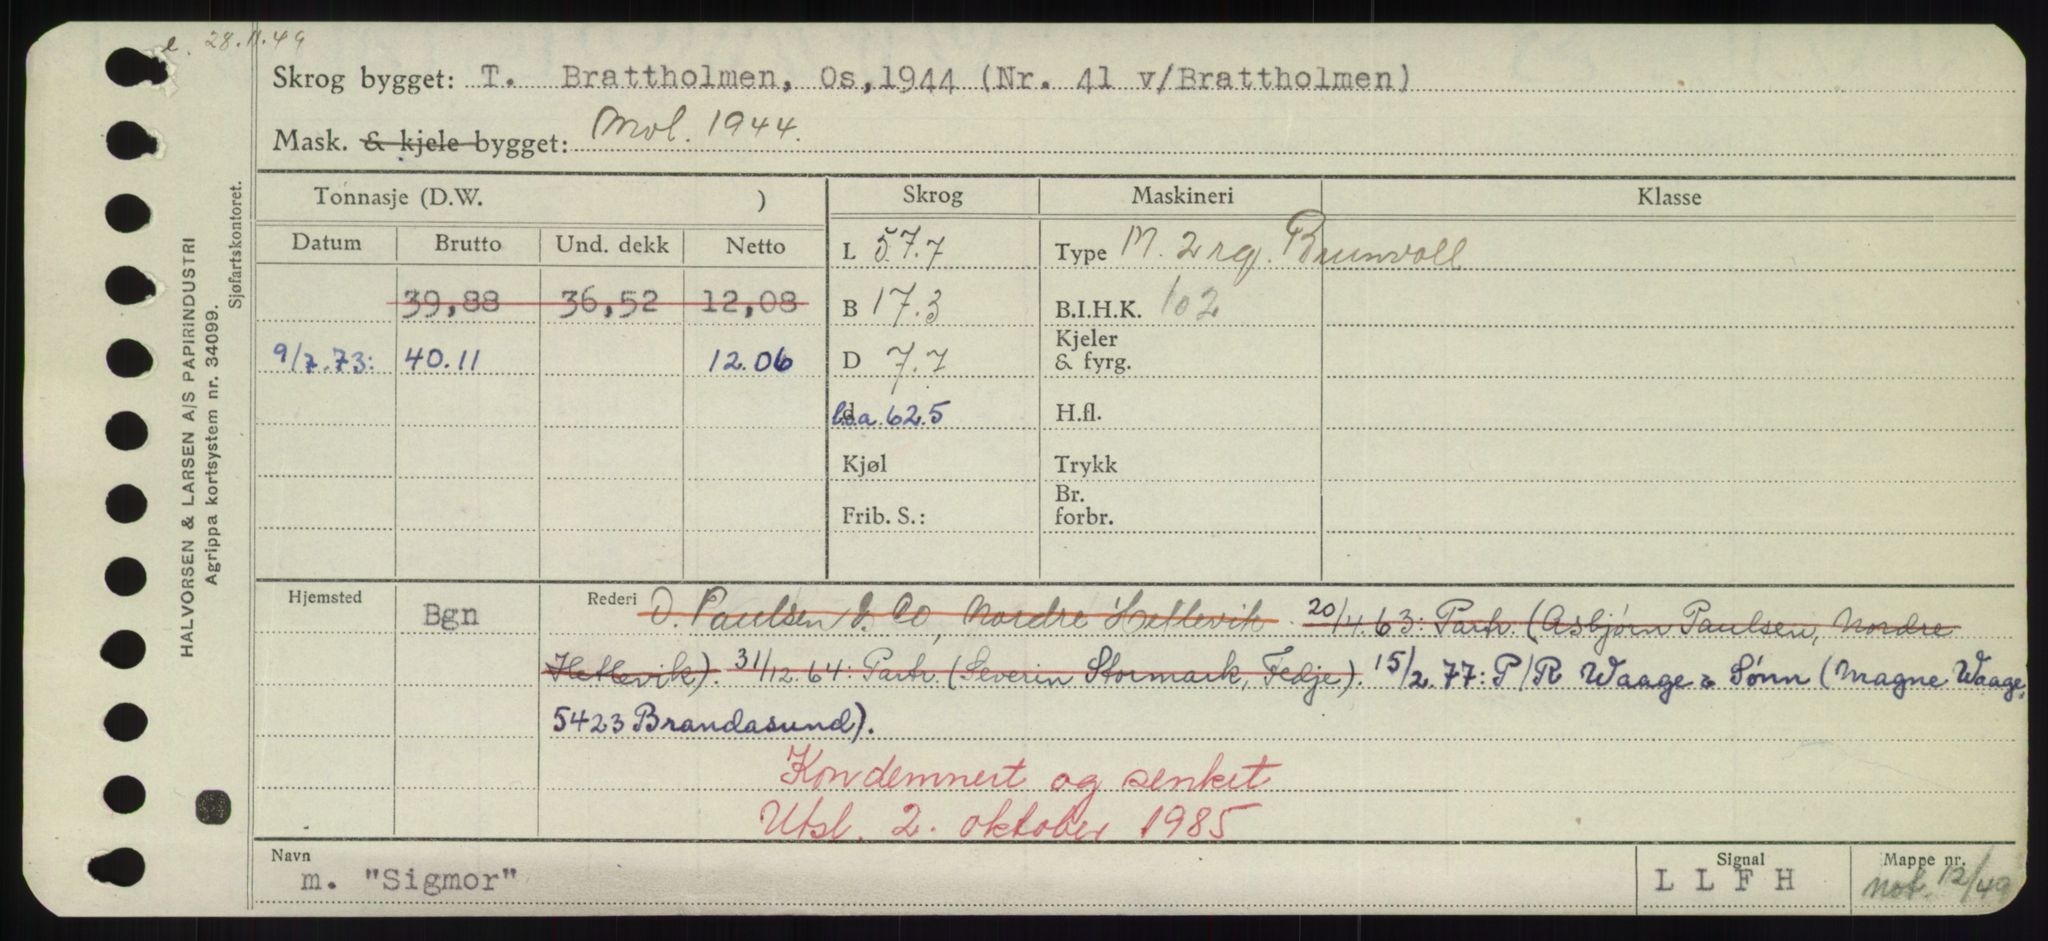 e. 28.11.49
Skrog bygget: T. Brattholmen, Os, 1944 (Nr. 41 v/Brattholmen)
Mask. & kjele bygget: Mol. 1944.
Tonnasje (D.W. ) Skrog Maskineri Klasse
Datum Brutto Und. dekk Netto
L 57.7 Type M. 2 rg. Brunvoll
39,88 36,52 12,08 B 17.3 B.I.H.K. 102
9/7.73: 40.11 12.06 D 7.7 Kjeler & fyrg.
l.o.a. 62.5 H.fl.
Kjøl Trykk
Frib. S.: Br. forbr.
Hjemsted Bgn Rederi O. Paulsen & Co, Nordre Hettevik. 20/4.63: Partr. (Asbjørn Paulsen, Nordre
Hettevik). 31/12.64: Partr. (Severin Stormark, Fedje). 15/2.77: P/R Waage & Sønn (Magne Waage,
5423 Brandasund).
Kondemnert og senket
Utsl. 2. oktober 1985
Navn m. "Sigmor" Signal L L F H Mappe nr. not. 12/49
HALVORSEN & LARSEN A/S PAPIRINDUSTRI
Agrippa kortsystem nr. 34099.
Sjøfartskontoret.